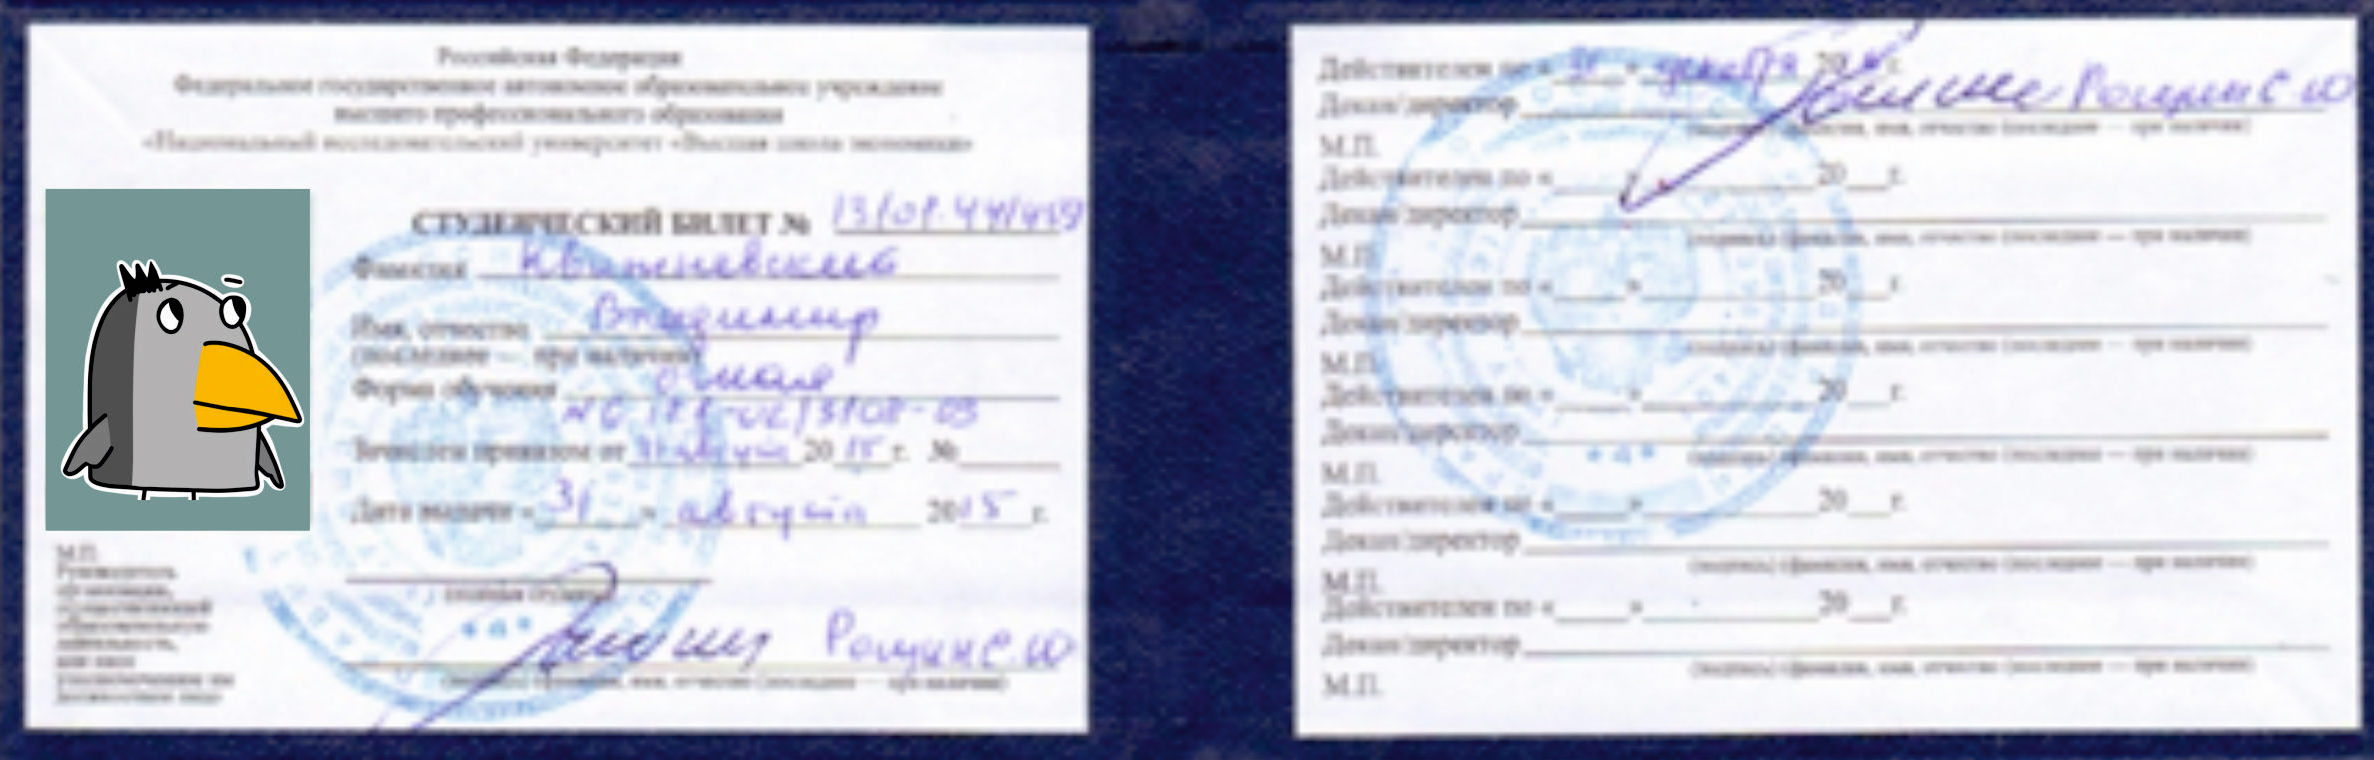 Российская Федерация
Федеральное государственное автономное образовательное учреждение
высшего профессионального образования
«Национальный исследовательский университет «Высшая школа экономики»
СТУДЕНЧЕСКИЙ БИЛЕТ №
Фамилия
Имя, отчество Владимир
(последнее — при наличии)
Форма обучения очная
Зачислен приказом от 31 августа 2015 г. №
Дата выдачи « 31 » августа 2015 г.
М.П.
Руководитель
организации,
осуществляющей
образовательную
деятельность,
или иное
уполномоченное им
должностное лицо
Рощин С.Ю
(подпись) (фамилия, имя, отчество (последнее — при наличии)
Действителен по « 31 » декабря 20 г.
Декан/директор Рощин С.Ю
(подпись) (фамилия, имя, отчество (последнее — при наличии)
М.П.
Действителен по « » 20 г.
Декан/директор
(подпись) (фамилия, имя, отчество (последнее — при наличии)
М.П.
Действителен по « » 20 г.
Декан/директор
(подпись) (фамилия, имя, отчество (последнее — при наличии)
М.П.
Действителен по « » 20 г.
Декан/директор
(подпись) (фамилия, имя, отчество (последнее — при наличии)
М.П.
Действителен по « » 20 г.
Декан/директор
(подпись) (фамилия, имя, отчество (последнее — при наличии)
М.П.
Действителен по « » 20 г.
Декан/директор
(подпись) (фамилия, имя, отчество (последнее — при наличии)
М.П.